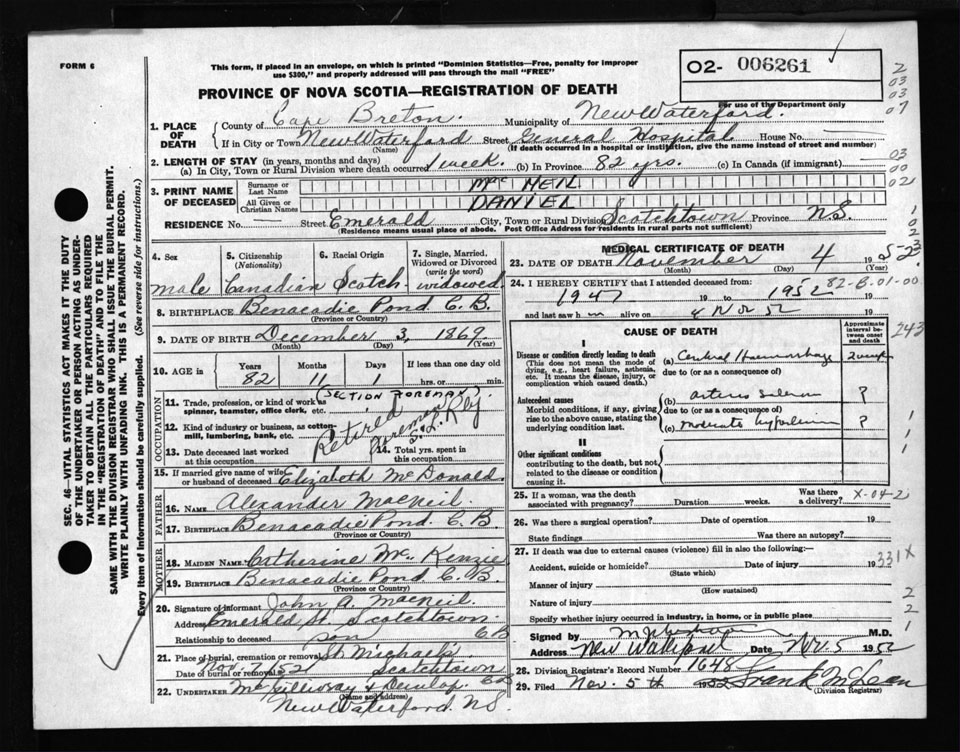 FORM 6
This form, if placed in an envelope, on which is printed "Dominion Statistics—Free, penalty for improper
use $300," and properly addressed will pass through the mail "FREE"
O2- 006261
PROVINCE OF NOVA SCOTIA—REGISTRATION OF DEATH
For use of the Department only
1. PLACE OF DEATH County of Cape Breton. Municipality of New Waterford.
If in City or Town New Waterford Street General Hospital House No.
(Name) (If death occurred in a hospital or institution, give the name instead of street and number)
2. LENGTH OF STAY (in years, months and days)
(a) In City, Town or Rural Division where death occurred 1 week. (b) In Province 82 yrs. (c) In Canada (if immigrant)
3. PRINT NAME OF DECEASED Surname or Last Name Mac NEIL
All Given or Christian Names DANIEL
RESIDENCE No. Street Emerald City, Town or Rural Division Scotchtown Province N.S.
(Residence means usual place of abode. Post Office Address for residents in rural parts not sufficient)
4. Sex male
5. Citizenship (Nationality) Canadian
6. Racial Origin Scotch
7. Single, Married, Widowed or Divorced (write the word) widowed
8. BIRTHPLACE Benacadie Pond C.B.
(Province or Country)
9. DATE OF BIRTH December 3, 1869
(Month) (Day) (Year)
10. AGE in Years 82 Months 11 Days 1 If less than one day old hrs. or min.
OCCUPATION
11. Trade, profession, or kind of work as spinner, teamster, office clerk, etc. SECTION FOREMAN
12. Kind of industry or business, as cotton-mill, lumbering, bank, etc. Retired foreman S. L. Rly
13. Date deceased last worked at this occupation
14. Total yrs. spent in this occupation
15. If married give name of wife or husband of deceased Elizabeth McDonald
FATHER
16. NAME Alexander MacNeil.
17. BIRTHPLACE Benacadie Pond. C.B
(Province or Country)
MOTHER
18. MAIDEN NAME Catherine Mc Kenzie
19. BIRTHPLACE Benacadie Pond C.B.
(Province or Country)
20. Signature of informant John A. MacNeil.
Address Emerald St. Scotchtown
Relationship to deceased son CB
21. Place of burial, cremation or removal St Michaels
Date of burial or removal Nov. 7/52 Scotchtown
22. UNDERTAKER McGillivray & Dunlop. CB
(Name and address)
New Waterford. N.S.
MEDICAL CERTIFICATE OF DEATH
23. DATE OF DEATH November 4 1952
(Month) (Day) (Year)
24. I HEREBY CERTIFY that I attended deceased from:
1947 19 to 1952 82-B-01-00
and last saw h m alive on 4 Nov 52 19
CAUSE OF DEATH
Approximate interval between onset and death
I
Disease or condition directly leading to death
(This does not mean the mode of dying, e.g., heart failure, asthenia, etc. It means the disease, injury, or complication which caused death.)
(a) Cerebral Haemorrhage 2 weeks
due to (or as a consequence of)
Antecedent causes
Morbid conditions, if any, giving rise to the above cause, stating the underlying condition last.
(b) ?
due to (or as a consequence of)
(c) moderate ?
II
Other significant conditions
contributing to the death, but not related to the disease or condition causing it.
25. If a woman, was the death associated with pregnancy? Duration weeks. Was there a delivery? X-04-2
26. Was there a surgical operation? Date of operation 19
State findings Was there an autopsy?
27. If death was due to external causes (violence) fill in also the following:—
Accident, suicide or homicide? Date of injury 19 331X
(State which)
Manner of injury
(How sustained)
Nature of injury
Specify whether injury occurred in industry, in home, or in public place
Signed by M.D.
Address New Waterford Date Nov. 5 1952
28. Division Registrar's Record Number 1648
29. Filed Nov. 5th 1952 Frank McLean
(Division Registrar)
SEC. 46—VITAL STATISTICS ACT MAKES IT THE DUTY
OF THE UNDERTAKER OR PERSON ACTING AS UNDER-
TAKER TO OBTAIN ALL THE PARTICULARS REQUIRED
IN THE "REGISTRATION OF DEATH" AND TO FILE THE
SAME WITH THE DIVISION REGISTRAR WHO SHALL ISSUE THE BURIAL PERMIT.
WRITE PLAINLY WITH UNFADING INK. THIS IS A PERMANENT RECORD.
Every item of information should be carefully supplied. (See reverse side for instructions.)
2
03
03
07
03
00
02
1
0
2
3
243
1
1
1
2
2
1